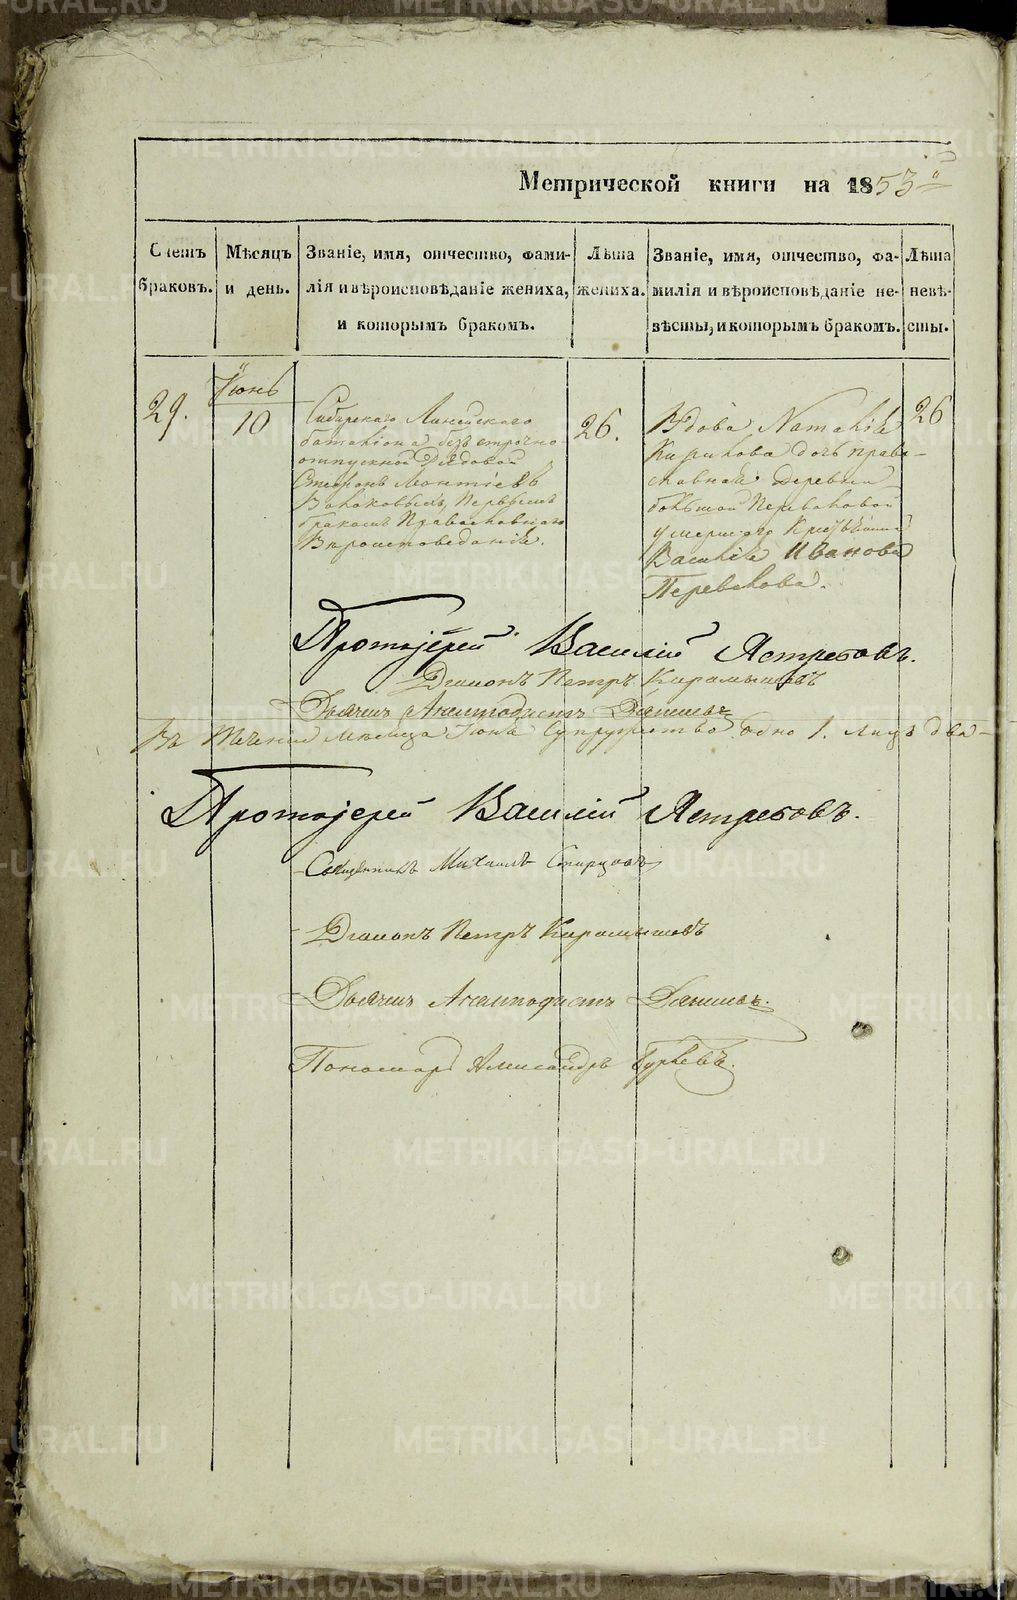 Метрической книги на 1853й
Счетъ браковъ.
Мѣсяцъ и день.
Званіе, имя, отчество, фами-
лія и вѣроисповѣданіе жениха,
и которымъ бракомъ.
Лѣта
жениха.
Званіе, имя, отчество, фа-
милія и вѣроисповѣданіе не-
вѣсты, и которымъ бракомъ.
Лѣта
невѣ-
сты.
29.
Іюнь
10
Сибирскаго Линейскаго
баталіона безсрочно
отпускной Рядовой
Леонтіевъ
первымъ
бракомъ Православнаго
Вѣроисповеданія.
26.
Вдова Наталія
Кирилова дочь право-
славная Деревни
большой Переваловой
умершаго
Василія Иванова
Перевалова.
26
Протоіерей Василій Ястребовъ.
Діаконъ Петръ Карамышевъ
Дьячекъ Анемподистъ
Въ теченіи месяца Іюня Супружество одно 1. лицъ два
Протоіерей Василій Ястребовъ.
Священникъ Михаилъ
Діаконъ Петръ Карамышевъ
Дьячекъ Анемподистъ
Пономарь Александръ Гурьевъ.
METRIKI.GASO-URAL.RU